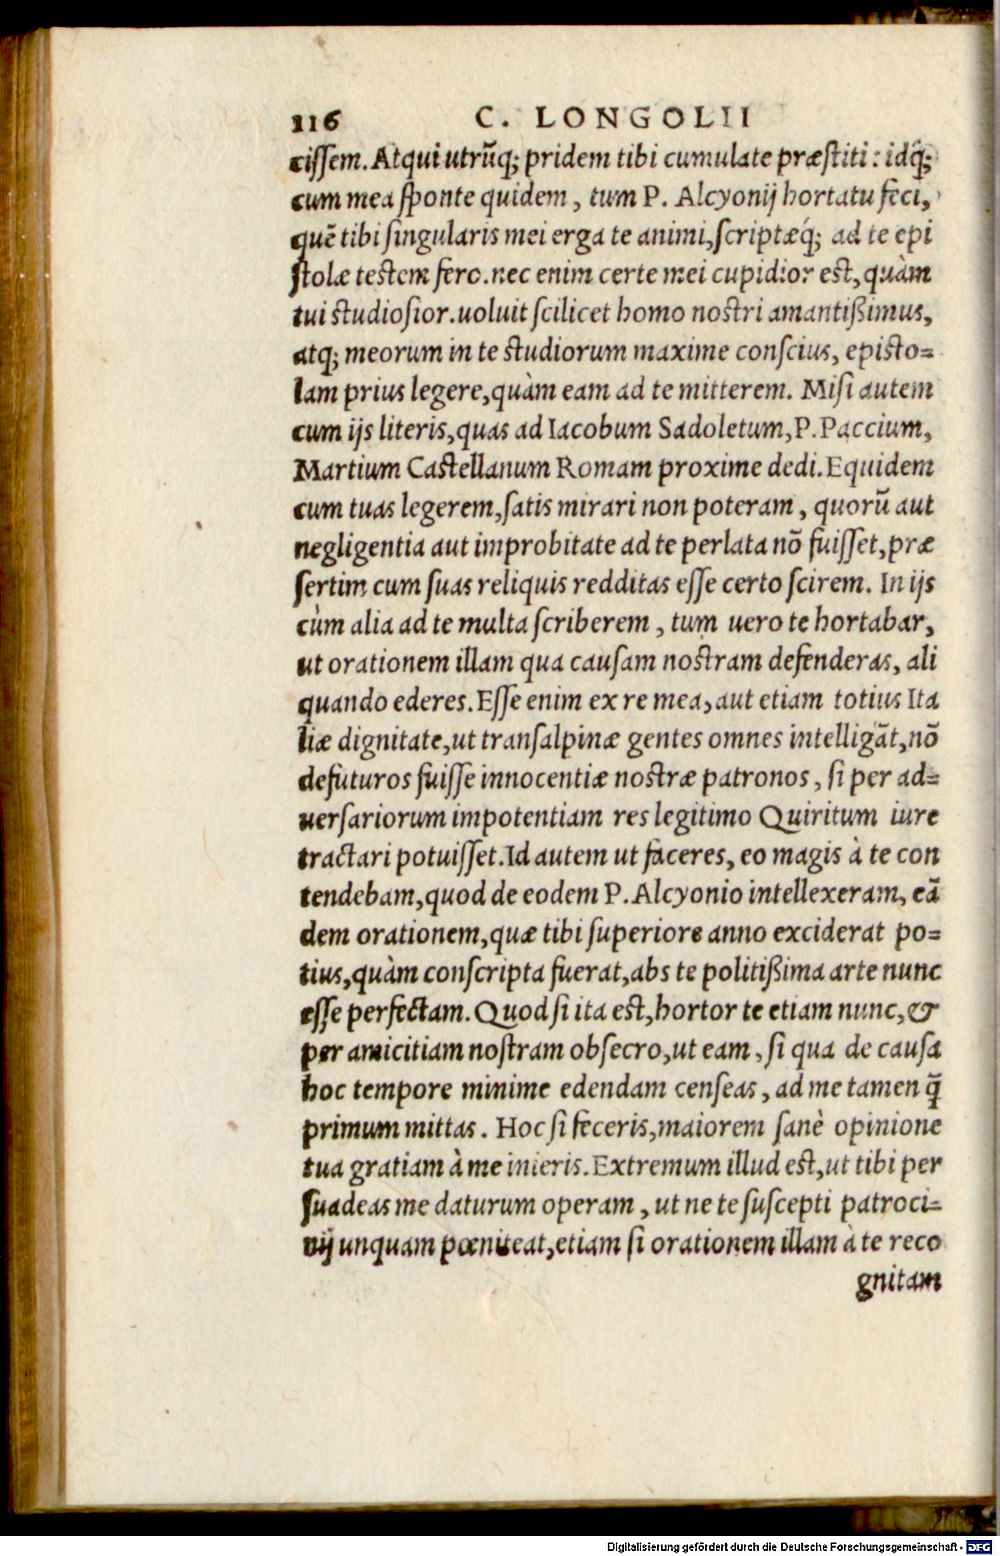 116 C. LONGOLII
cissem. Atqui utrũq; pridem tibi cumulate præstiti: idq́;
cum mea sponte quidem, tum P. Alcyonij hortatu feci,
quẽ tibi singularis mei erga te animi, scriptæq́; ad te epi
stolæ testem fero. nec enim certe mei cupidior est, quàm
tui studiosior. uoluit scilicet homo nostri amantißimus,
atq; meorum in te studiorum maxime conscius, episto=
lam prius legere, quàm eam ad te mitterem. Misi autem
cum ijs literis, quas ad Iacobum Sadoletum, P. Paccium,
Martium Castellanum Romam proxime dedi. Equidem
cum tuas legerem, satis mirari non poteram, quorũ aut
negligentia aut improbitate ad te perlata nõ fuisset, præ
sertim cum suas reliquis redditas esse certo scirem. In ijs
cùm alia ad te multa scriberem, tum uero te hortabar,
ut orationem illam qua causam nostram defenderas, ali
quando ederes. Esse enim ex re mea, aut etiam totius Ita
liæ dignitate, ut transalpinæ gentes omnes intelligãt, nõ
defuturos fuisse innocentiæ nostræ patronos, si per ad=
uersariorum impotentiam res legitimo Quiritum iure
tractari potuisset. Id autem ut faceres, eo magis à te con
tendebam, quod de eodem P. Alcyonio intellexeram, eã
dem orationem, quæ tibi superiore anno exciderat po=
tius, quàm conscripta fuerat, abs te politißima arte nunc
esse perfectam. Quod si ita est, hortor te etiam nunc, &
per amicitiam nostram obsecro, ut eam, si qua de causa
hoc tempore minime edendam censeas, ad me tamen q̃
primum mittas. Hoc si feceris, maiorem sanè opinione
tua gratiam à me inieris. Extremum illud est, ut tibi per
suadeas me daturum operam, ut ne te suscepti patroci=
nij unquam pœniteat, etiam si orationem illam à te reco
gnitam
Digitalisierung gefördert durch die Deutsche Forschungsgemeinschaft - DFG